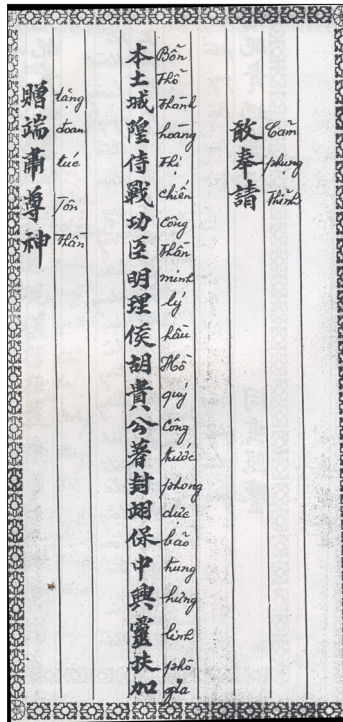 敢奉請
Cảm phụng thỉnh
本土城隍侍戰功臣明理侯胡貴公著封翊保中興靈扶加
Bổn Thổ Thành hoàng Thị chiến Công Thần minh lý hầu Hồ quý Công trước phong dực bảo trung hưng linh phò gia
贈端肅尊神
tặng đoan túc Tôn Thần